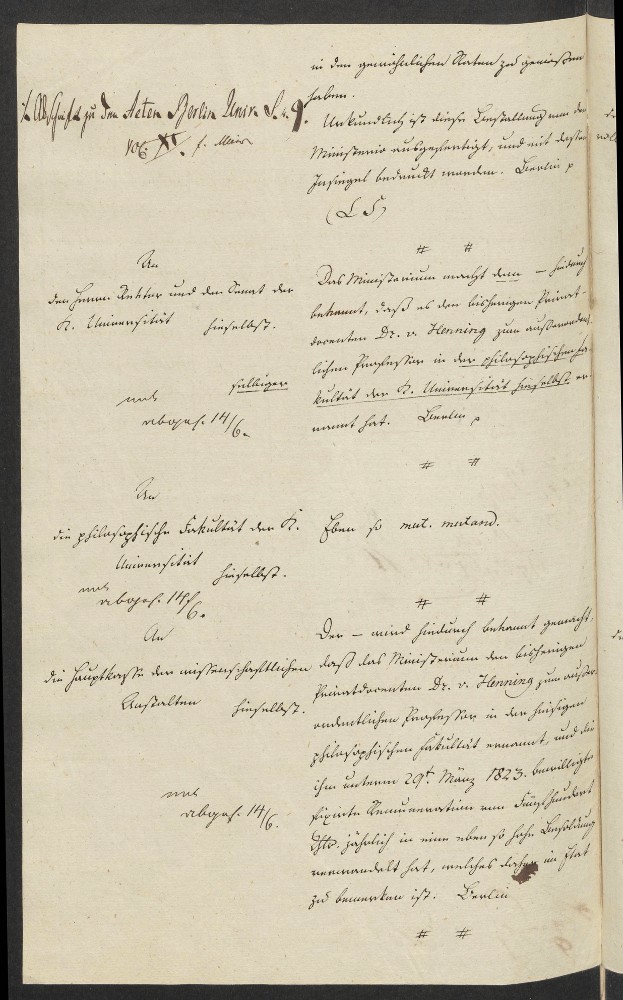 in den gewöhnlichen Raten zu genießen
haben.
Urkundlich ist diese Bestallung von dem
Ministerio ausgefertigt, und mit dessen
Insiegel bedruckt worden. Berlin
(L S)
Abschrift zu den Acten Berlin Univ. S. 9.
Vol. XI. f. Meir
An
den Herrn Rektor und den Senat der
K. Universität hieselbst.
mund
abges. 14/6.
# #
Das Ministerium macht dem — hiedurch
bekannt, daß es den bisherigen Privat-
docenten Dr. v. Henning zum außerordent-
lichen Professor in der philosophischen Fa-
kultät der K. Universität hieselbst er-
nannt hat. Berlin
# #
An
die philosophische Fakultät der K.
Universität hieselbst.
mund
abges. 14/6.
Eben so mut. mutand.
# #
An
die Hauptkasse der wissenschaftlichen
Anstalten hieselbst.
mund
abges. 14/6.
Der — wird hiedurch bekannt gemacht,
daß das Ministerium den bisherigen
Privatdocenten Dr. v. Henning zum außer-
ordentlichen Professor in der hiesigen
philosophischen Fakultät ernannt, und die
ihm unterm 29t. März 1823. bewilligte
fixirte Remuneration von Fünfhundert
Thlr. jährlich in eine eben so hohe Besoldung
verwandelt hat, welches daher im Etat
zu bemerken ist. Berlin
# #